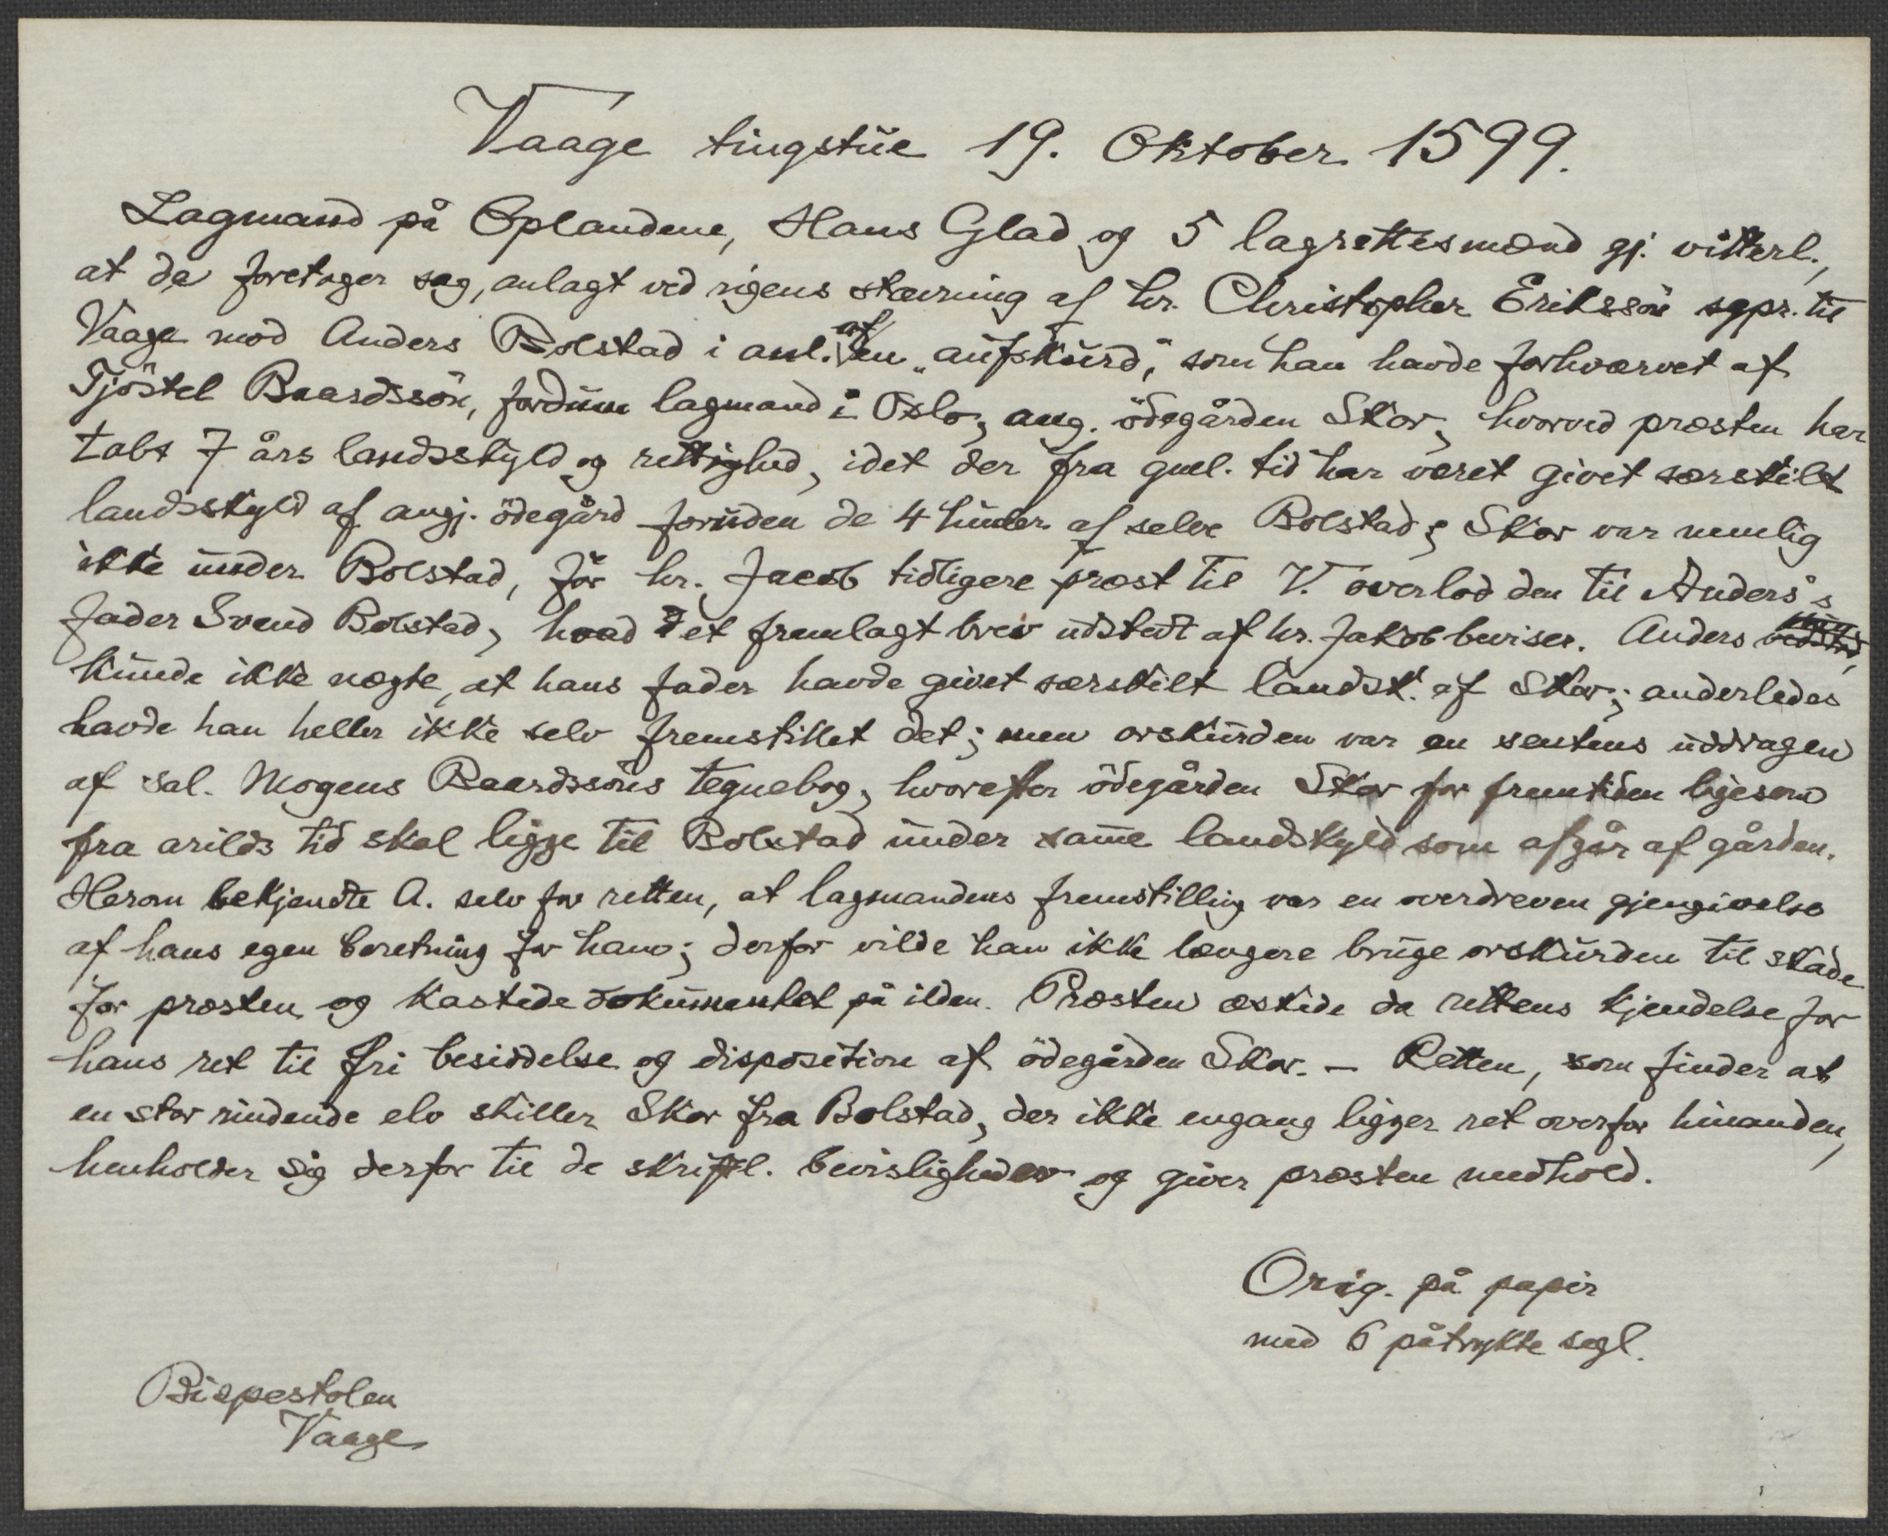 Vaage tingstue 19. Oktober 1599.
Lagmand på Oplandene, Hans Glad og 5 lagrettesmænd gj. vitterl.,
at de foretager sag, anlagt ved rigens stævning af hr. Christopher Erikssön sgpr. til
Vaage mod Anders Bolstad i anl. af en "aufskurd," som han havde forhværvet af
Tjöstel Baardssön, fordum lagmand i Oslo, ang. ödegården Skor, hvorved præsten har
tabt 7 års landsskyld og rettighed, idet der fra gml. tid har været givet særskilt
landsskyld af angj. ödegård foruden de 4 huder af selve Bolstad; Skor var nemlig
ikke under Bolstad, för hr. Jacob tidligere præst til V. overlod den til Anders's
fader Svend Bolstad, hvad et fremlagt brev udstedt af hr. Jakob beviser. Anders
kunde ikke nægte, at hans fader havde givet særskilt landsk. af Skor; anderledes
havde han heller ikke selv fremstillet det; men orskurden var en sentens uddragen
af sal. Mogens Baardssöns tegnebog, hvorefter ödegården Skor for fremtiden ligesom
fra arilds tid skal ligge til Bolstad under same landskyld som afgår af gården.
Herom bekjendte A. selv for retten, at lagmandens fremstilling var en overdreven gjengivelse
af hans egen beretning for ham; derfor vilde han ikke længere bruge orskurden til skade
for præsten og kastede dokumentet på ilden. Præsten æskede da rettens kjendelse for
hans ret til fri besiddelse og disposition af ödegården Skor. – Retten, som finder at
en stor rindende elv skiller Skor fra Bolstad, der ikke engang ligger ret overfor hinanden,
henholder sig derfor til de skriftl. bevisligheder og giver præsten medhold.
Orig. på papir
med 6 påtrykte segl.
Bispestolen
Vaage